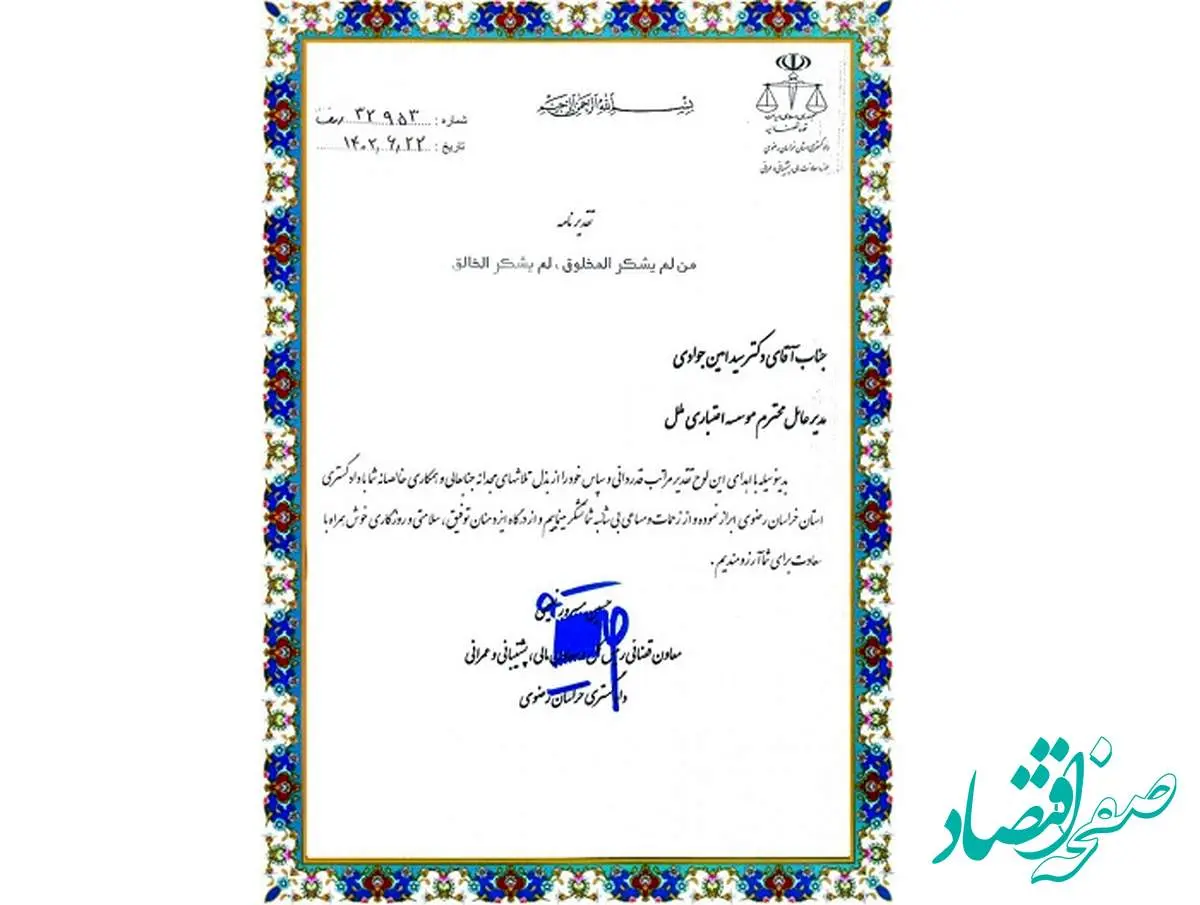 بسم الله الرحمن الرحیم
جمهوری اسلامی ایران
قوه قضائیه
دادگستری استان خراسان رضوی
شماره : ۳۲۹۵۳
تاریخ : ۱۴۰۲,۶,۲۲
تقدیرنامه
من لم یشکر المخلوق ، لم یشکر الخالق
جناب آقای دکتر سید امین جوادی
مدیرعامل محترم موسسه اعتباری ملل
بدینوسیله با اهدای این لوح تقدیر مراتب قدردانی و سپاس خود را از بذل تلاشهای مجدانه جنابعالی و همکاری خالصانه شما با دادگستری
استان خراسان رضوی ابراز نموده و از زحمات و مساعی بی شائبه شما تشکر مینماییم و از درگاه ایزد منان توفیق ، سلامتی و روزگاری خوش همراه با
سعادت برای شما آرزومندیم .
حسین
معاون قضائی رئیس کل مالی ، پشتیبانی و عمرانی
دادگستری خراسان رضوی
صفحه اقتصاد